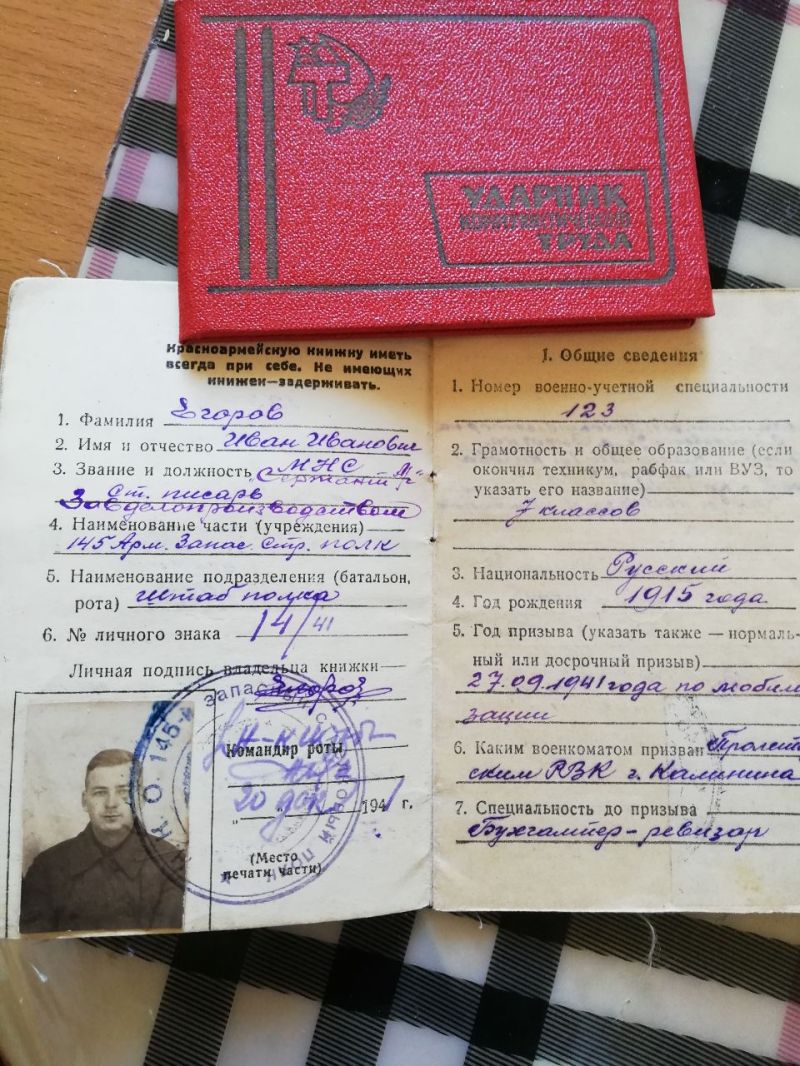 УДАРНИК
КОММУНИСТИЧЕСКОГО
ТРУДА
Красноармейскую книжку иметь
всегда при себе. Не имеющих
книжек—задерживать.
1. Фамилия Егоров
2. Имя и отчество Иван Иванович
3. Звание и должность МНС
Сержант
Ст. писарь
Завделопроизводством
4. Наименование части (учреждения)
145 Арм. Запас. Стр. полк
5. Наименование подразделения (батальон,
рота) Штаб полка
6. № личного знака 14/41
Личная подпись владельца книжки
Егоров
Командир роты
20 194 г.
(Место
печати части)
Н.К.О. 145-й ЗАПАСНЫЙ
I. Общие сведения
1. Номер военно-учетной специальности
123
2. Грамотность и общее образование (если
окончил техникум, рабфак или ВУЗ, то
указать его название)
7 классов
3. Национальность Русский
4. Год рождения 1915 года
5. Год призыва (указать также — нормаль-
ный или досрочный призыв)
27.09.1941 года по мобили
зации
6. Каким военкоматом призван Пролет
ским РВК г. Калинина
7. Специальность до призыва
Бухгалтер-ревизор